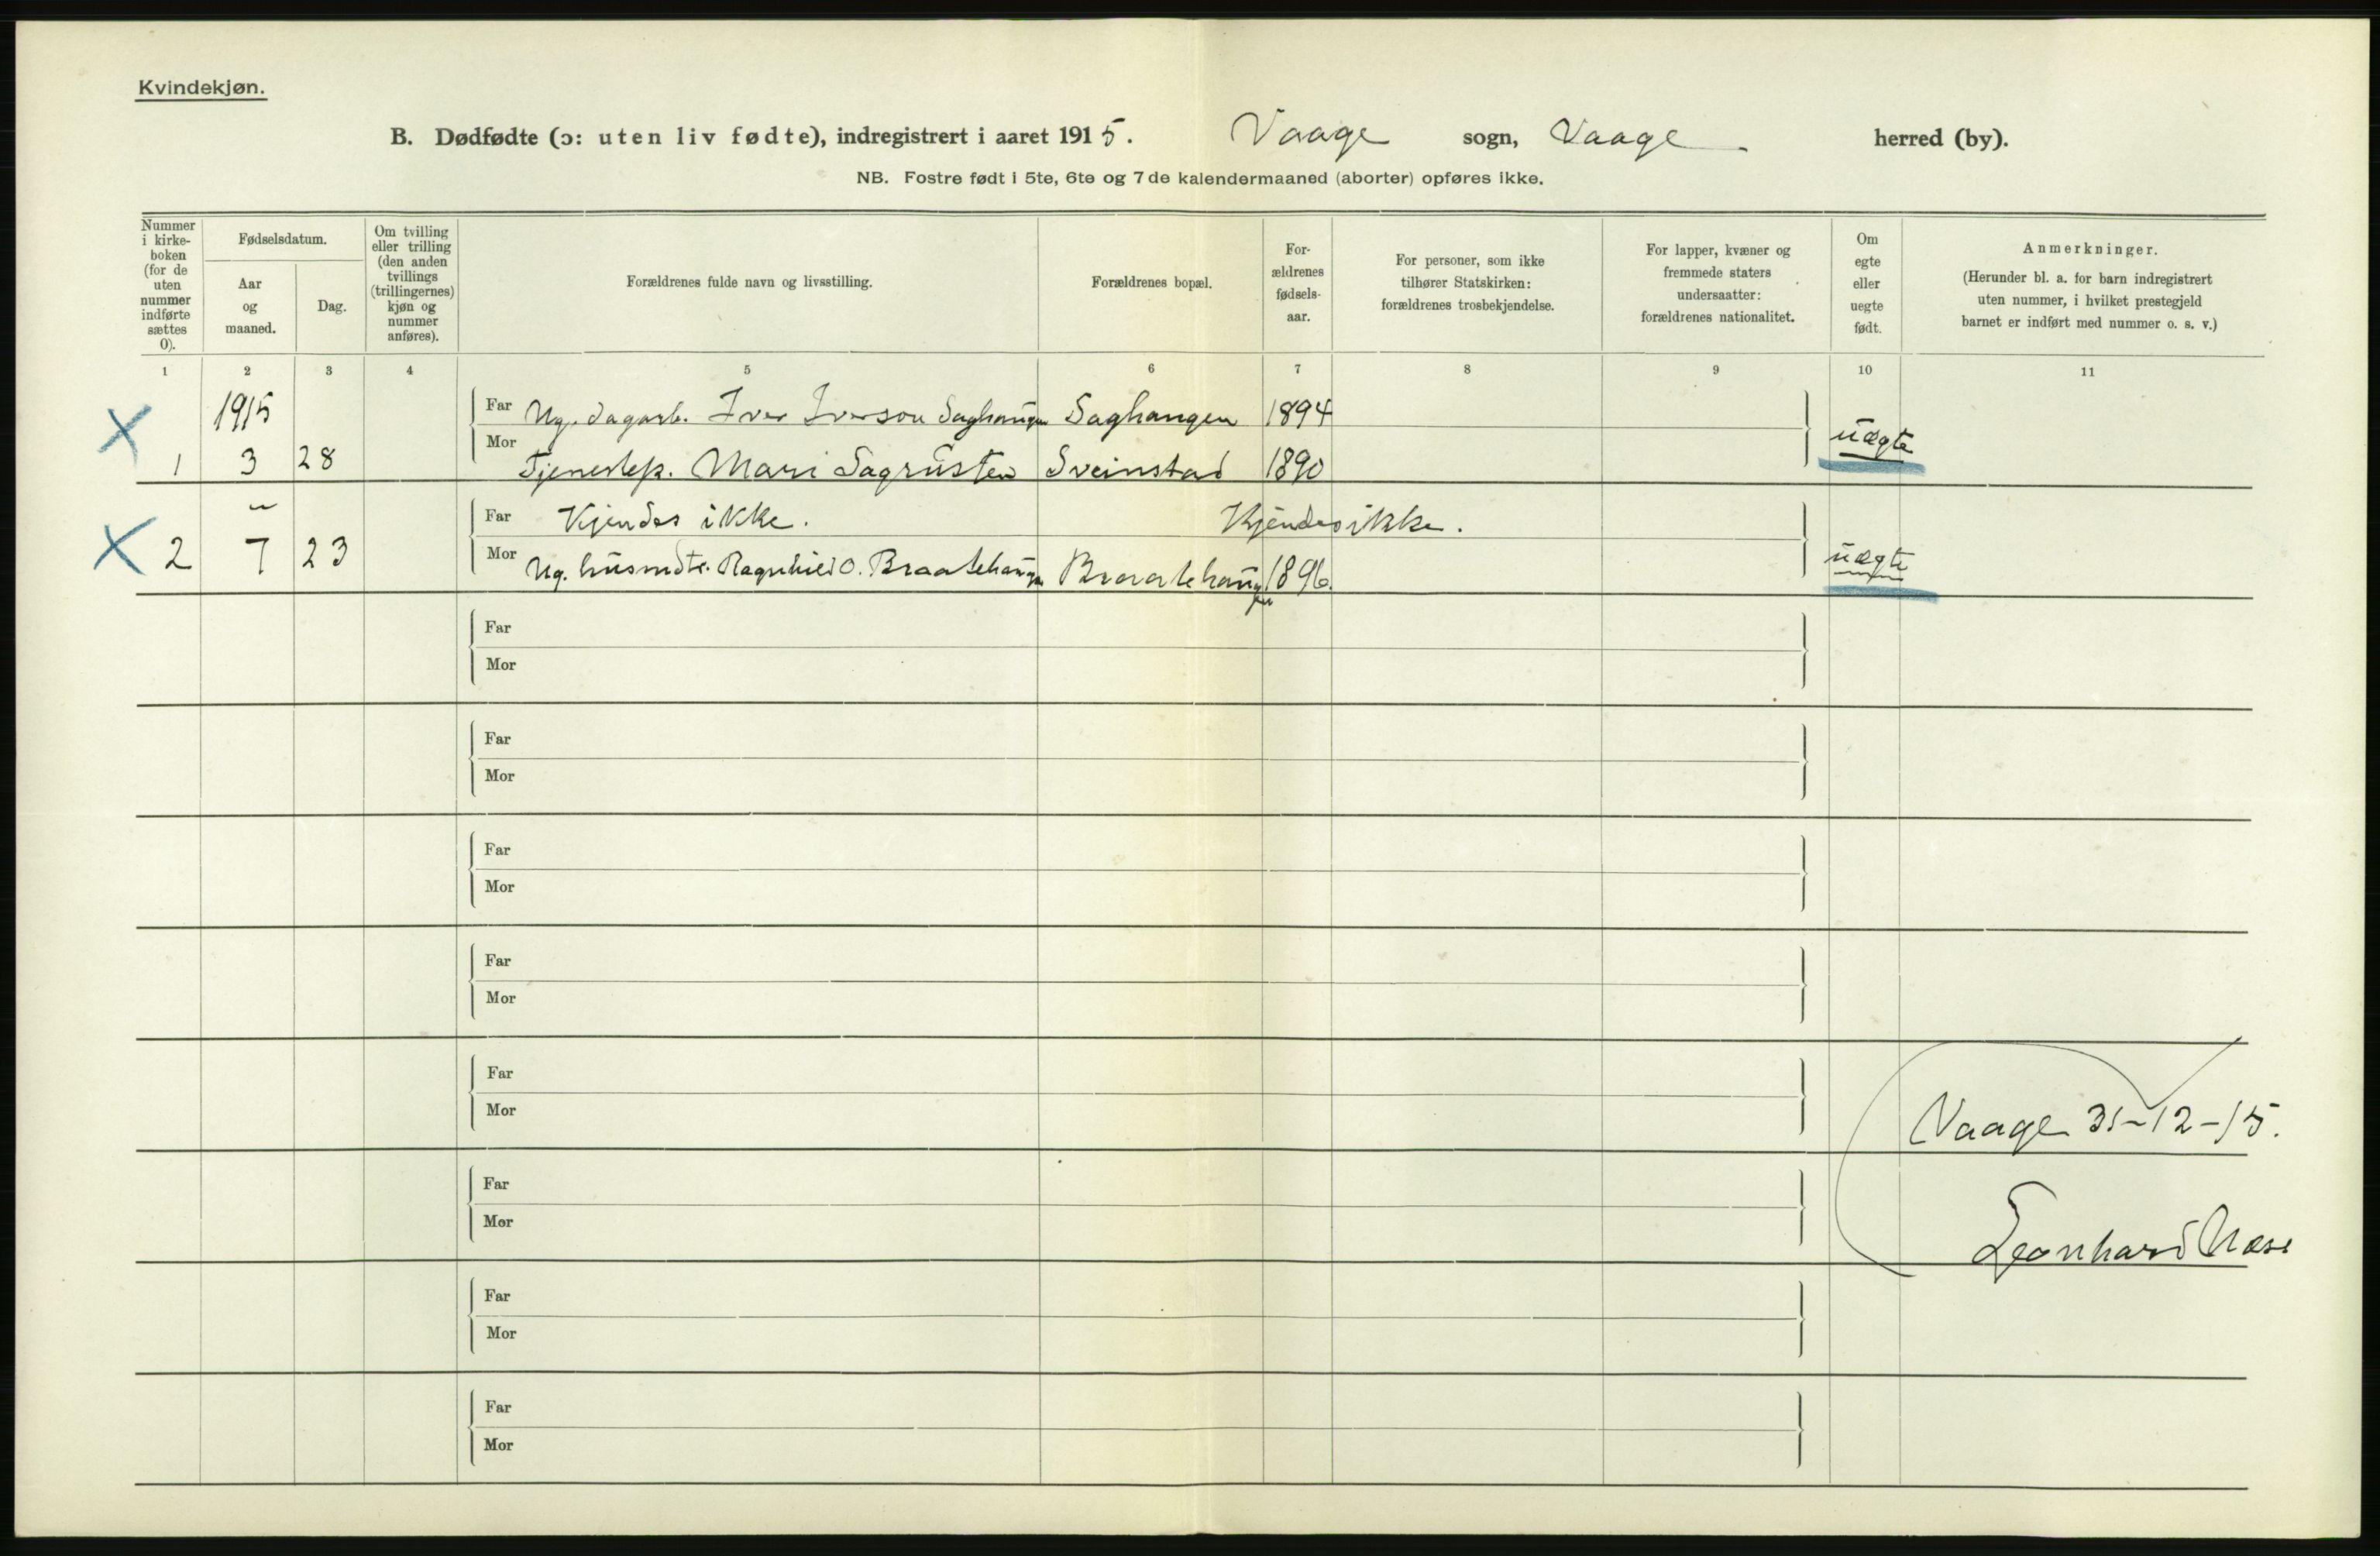 Kvindekjøn.
B. Dødfødte (ɔ: uten liv fødte), indregistrert i aaret 1915. Vaage sogn, Vaage herred (by).
NB. Fostre født i 5te, 6te og 7de kalendermaaned (aborter) opføres ikke.
Nummer i kirke-boken (for de uten nummer indførte sættes 0).
Fødselsdatum.
Aar og maaned.
Dag.
Om tvilling eller trilling (den anden tvillings (trillingernes) kjøn og nummer anføres).
Forældrenes fulde navn og livsstilling.
Forældrenes bopæl.
For-ældrenes fødsels-aar.
For personer, som ikke tilhører Statskirken: forældrenes trosbekjendelse.
For lapper, kvæner og fremmede staters undersaatter: forældrenes nationalitet.
Om egte eller uegte født.
Anmerkninger.
(Herunder bl. a. for barn indregistrert uten nummer, i hvilket prestegjeld barnet er indført med nummer o. s. v.)
1 2 3 4 5 6 7 8 9 10 11
1915 Far Ug. dagarb. Iver Iverson Saghaugen Saghaugen 1894
1 3 28 Mor Tjenestep. Mari Sagrusten Sveinstad 1890 uægte
" Far Kjendes ikke. Kjendes ikke.
2 7 23 Mor Ug. husmdtr. Ragnhild O. Braatehaugen Braatehaugen 1896. uægte
Far
Mor
Far
Mor
Far
Mor
Far
Mor
Far
Mor
Vaage 31-12-15.
Far
Mor
Leonhard Næss
Far
Mor
Far
Mor